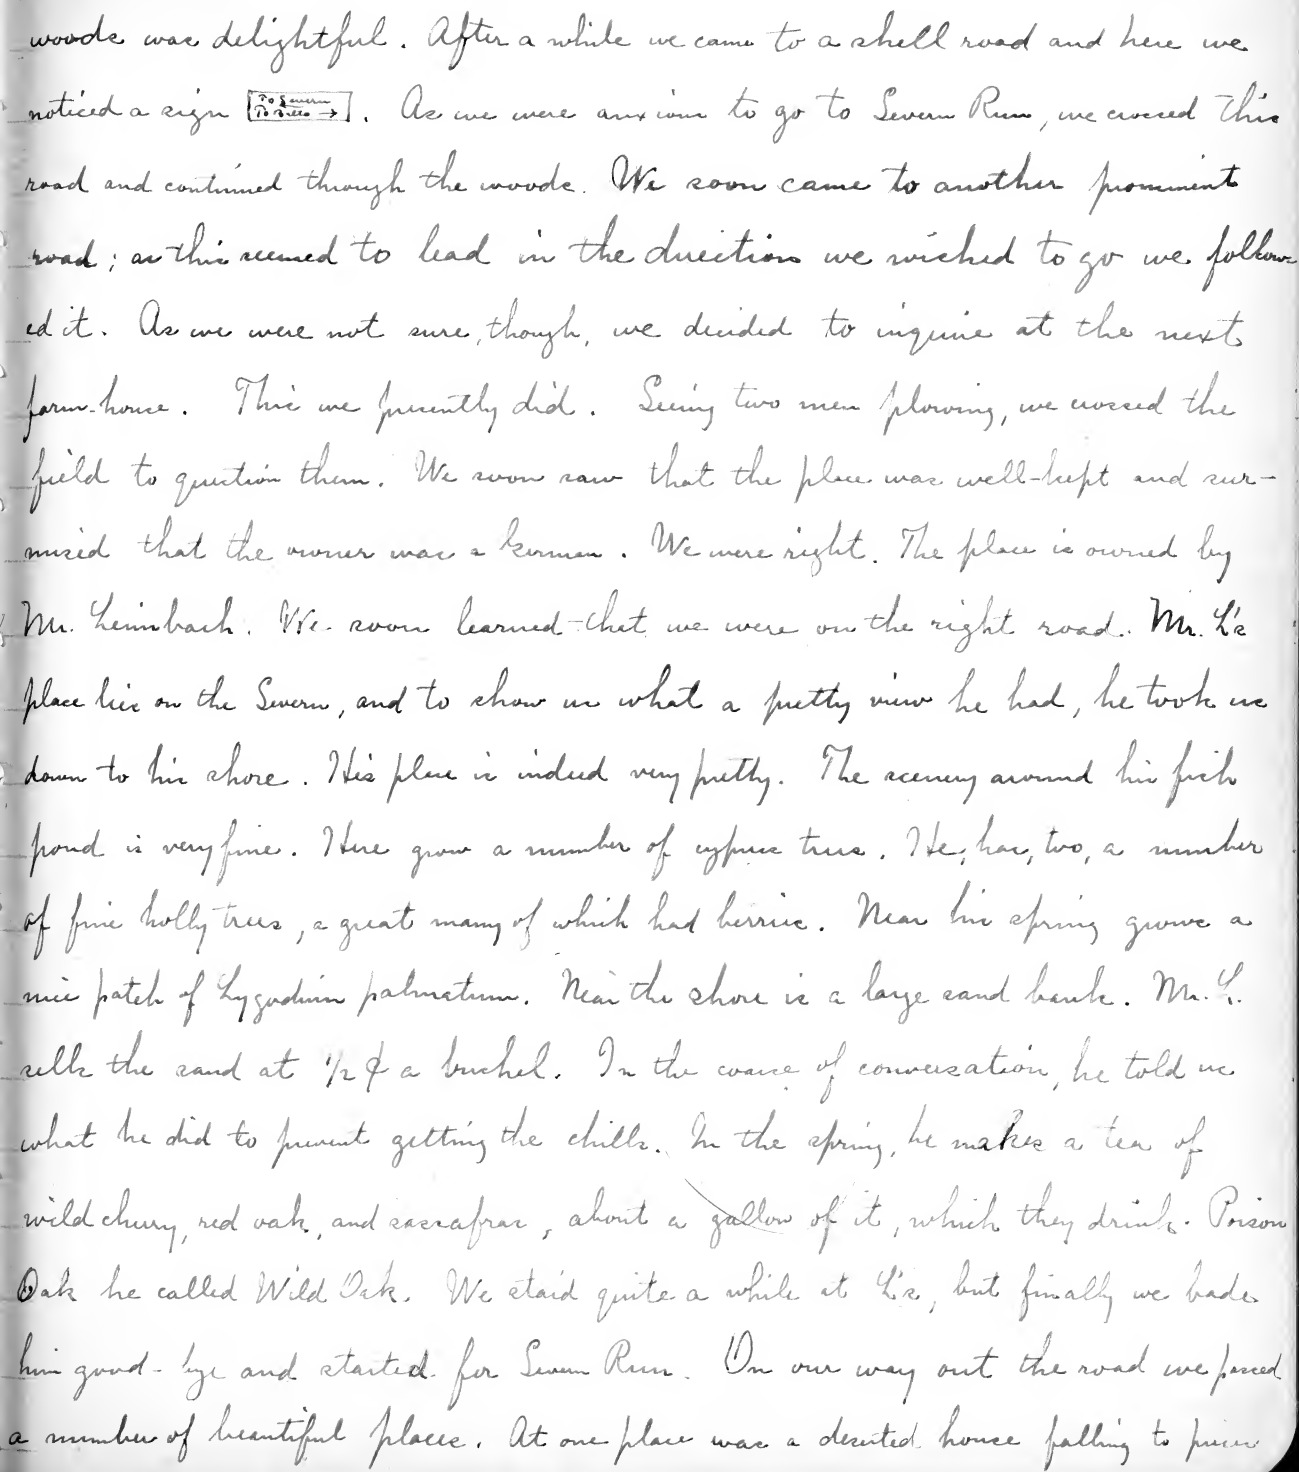 woods was delightful. After a while we came to a shell road and here we
noticed a sign To Severn To Bello →. As we were anxious to go to Severn Run, we crossed this
road and continued through the woods. We soon came to another prominent
road; as this seemed to lead in the direction we wished to go we follow-
ed it. As we were not sure, though, we decided to inquire at the next
farm-house. This we presently did. Seeing two men plowing, we crossed the
field to question them. We soon saw that the place was well-kept and sur-
mised that the owner was a German. We were right. The place is owned by
Mr. Leimbach. We soon learned that we were on the right road. Mr. L's
place lies on the Severn, and to show us what a pretty view he had, he took us
down to his shore. His place is indeed very pretty. The scenery around his fish
pond is very fine. Here grow a number of cypress trees. He, has, too, a number
of fine holly trees, a great many of which had berries. Near his spring grows a
nice patch of Lygodium palmatum. Near the shore is a large sand bank. Mr. L.
sells the sand at 1/2 ¢ a bushel. In the course of conversation, he told us
what he did to prevent getting the chills. In the spring, he makes a tea of
wild cherry, red oak, and sassafras, about a gallon of it, which they drink. Poison
Oak he called Wild Oak. We staid quite a while at L's, but finally we bade
him good-bye and started for Severn Run. On our way out the road we passed
a number of beautiful places. At one place was a deserted house falling to pieces